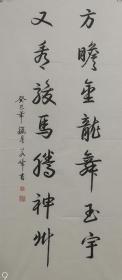 方瞻金龍舞玉宇
又看駿馬騰神州
癸巳年 峰書